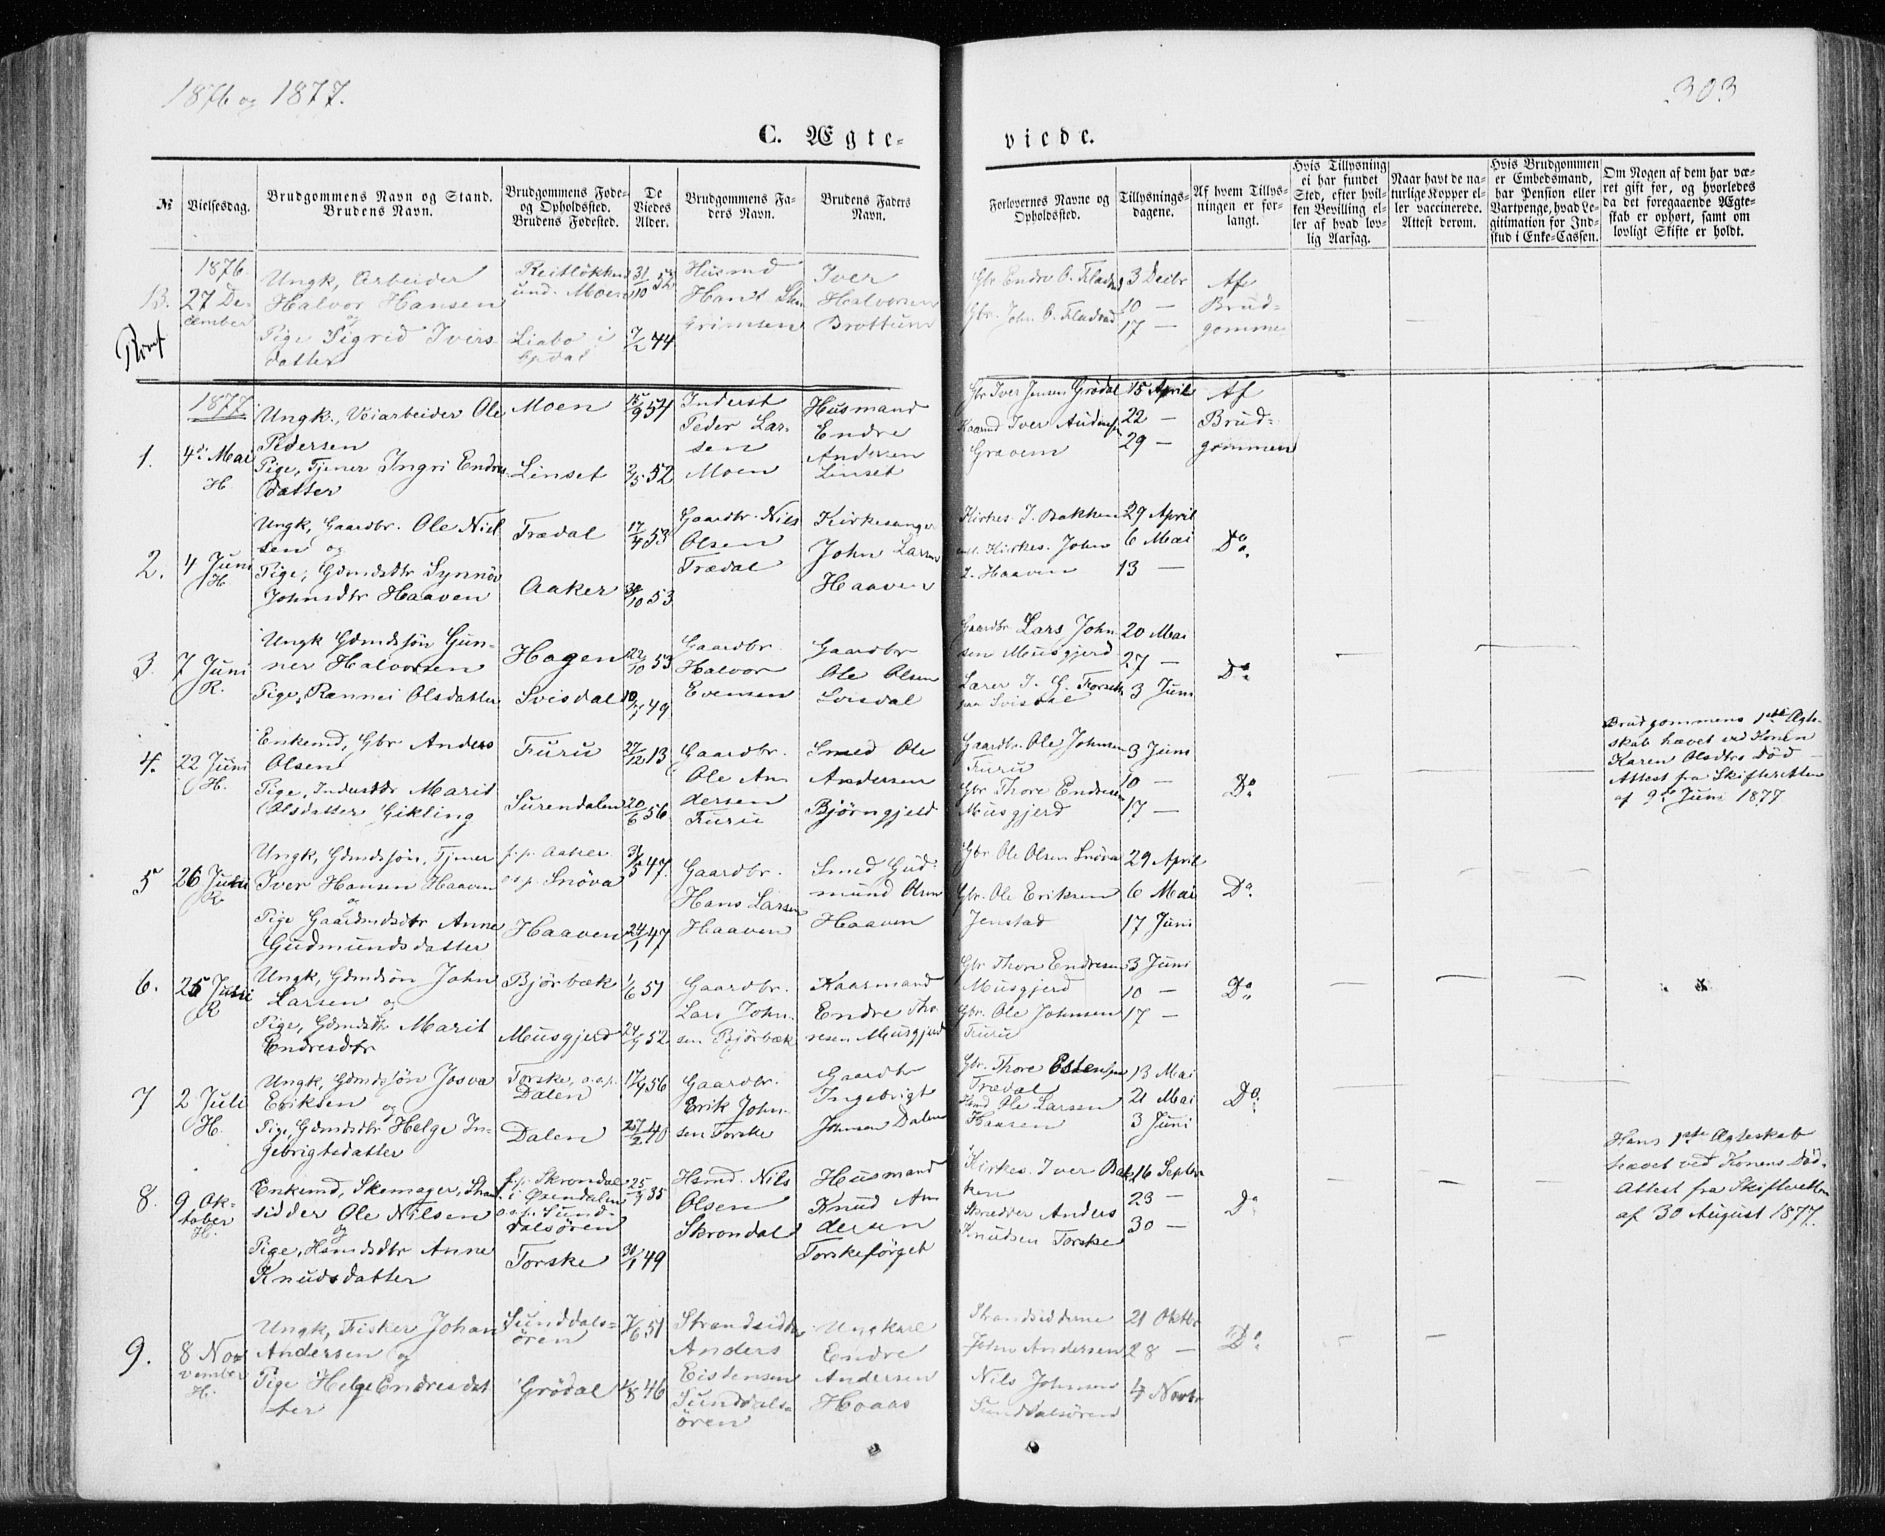 1876 og 1877.
303
C. Ægte-
viede.
№
Vielsesdag.
Brudgommens Navn og Stand.
Brudens Navn.
Brudgommens Føde-
og Opholdssted.
Brudens Fødested.
De
Viedes
Alder.
Brudgommens Fa-
ders Navn.
Brudens Faders
Navn.
Forlovernes Navne og
Opholdssted.
Tillysnings-
dagene.
Af hvem Tillys-
ningen er for-
langt.
Hvis Tillysning
ei har fundet
Sted, efter hvil-
ken Bevilling el-
ler af hvad lov-
lig Aarsag.
Naar havt de na-
turlige Kopper el-
ler vaccinerede.
Attest derom.
Hvis Brudgommen
er Embedsmand,
har Pension eller
Vartpenge, hvad Le-
gitimation for Ind-
stud i Enke-Cassen.
Om Nogen af dem har væ-
ret gift før, og hvorledes
da det foregaaende Ægte-
skab er ophørt, samt om
lovligt Skifte er holdt.
13.
1876
27 De-
cember
Ungk, Arbeider
Halvor Hansen
og
Pige Sigrid Ivers
datter
und. Moen
Liabø i
Opdal
31/10 52
7/2 44
Husmd
Iver
Halvorsen
Brottund
Gbr Endre O. Fladvad
Gbr. John O. Fladvad
3 Decbr
10 —
17 —
Af
Brud-
gomme
1877
1.
4de Mai
H.
Ungk., Veiarbeider Ole
Pedersen
Pige, Tjener Ingri Endres
datter
Moen
Linset
15/9 54
2/5 52
Inderst
Peder Lar-
sen
Moen
Husmand
Endre
Andersen
Linset
Gbr Iver Jensen Grødal
Kaarmd Iver Andersen
Gravem
15 April
22 —
29 —
Af
Brud-
gommen
2.
4 Juni
H.
Ungk, Gaardbr. Ole Niel
sen og
Pige, Gdmdsdtr Synnøv
Johnsdtr Haaven
Trædal
Aaker
17/4 53
30/10 53
Gaardbr. Nils
Olsen
Trædal
Kirkesanger
John Larsen
Haaven
Kirkes. I. Bakken
Kirkes. John
L. Haaven
29 April
6 Mai
13 —
Do.
3.
7 Juni
R.
Ungk Gdmdssøn Gun-
ner Halvorsen
Pige, Rannei Olsdatter
Hagen
Svisdal
22/10 53
Gaardbr.
Halvor
Evensen
Gaardbr
Ole Olsen
Svisdal
Gaardbr. Lars John
sen Musgjerd
Lærer I. G. Forseth
paa Svisdal
20 Mai
27 —
3 Juni
Do.
4.
22 Juni
H.
Enkemd, Gbr Anders
Olsen
Pige, Inderstdtr Marit
Olsdatter Gikling
Furu
Surendalen
27/12 13
20/6 56
Gaardbr.
Ole An
dersen
Furu
Smed Ole
Andersen
Bjørngjeld
Gaardbr. Ole Johnsen
Furu
Gbr Thore Endresen
Musgjerd
3 Juni
10 —
17 —
Do.
Brudgommens 1ste Ægte-
skab hævet ved Konen
Karen Olsdtrs Død
Attest fra Skifteretten
af 9de Juni 1877
5
26 Juni
R.
Ungk, Gdmdssøn, Tjener
Iver Hansen Haaven
og
Pige Gaardmdsdtr Anne
Gudmundsdatter
f.p. Aaker
o.s.p. Snøva
Haaven
31/5 47.
24/1 47
Gaardbr.
Hans Larsen
Haaven
Smed Gud-
mund Olsen
Haaven
Gbr. Ole Olsen Snøva
Gbr. Ole Eriksen
Jenstad
29 April
6 Mai
17 Juni
Do.
6.
25 Juni
R
Ungk, Gdmdsøn John
Larsen og
Pige, Gdmdsdtr Marit
Endresdtr
Bjørbæk
Musgjerd
1/6 51
Gaardbr.
Lars John-
sen Bjørbæk
Kaarmand
Endre Tho
resen Musgjerd
Gbr Thore Endresen
Musgjerd
Gbr. Ole Johnsen
Furu
3 Juni
10 —
17 —
Do.
7
2 Juli
H.
Ungk, Gdmdssøn Josva
Eriksen og
Pige, Gdmdsdtr Helge In-
gebrigtsdatter
Torske, o.s.p.
Dalen
Dalen
17/9 56
27/2 40
Gaardbr.
Erik John-
sen Torske
Gaardbr
Ingebrigt
Johnsen Dalen
Gbr. Thore Estensen
Trædal
Ole Larsen
13 Mai
21 Mai
3 Juni
Do.
8.
9 Ok-
tober
H.
Enkemd, Skomager, Stran
sidder Ole Nilsen
og
Pige, Hsmdsdtr Anne
Knudsdatter
f.p. Skrondal
i Øxendalen
o.s.p. Sund-
dalsøren
Torske
25/9 35
30/1 49
Hsmd. Nils
Olsen
Skrondal
Husmand
Knud An
dersen
Torskeførget
Kirkes. Iver Bak-
ken
Skrædder Anders
Knudsen Torske
16 Septbr
23 —
30 —
Do
Hans 1ste Ægteskab
hævet ved Konens Død.
Attest fra Skifteretten
af 30 August 1877.
9.
8 No-
vember
H.
Ungk, Fisker Johan
Andersen og
Pige Helge Endresdat
ter
Sunddals-
øren
Grødal
7/6 51
1/8 46
Strandsidder
Anders
Eistensen
Sunddals-
øren
Ungkarl
Endre
Andersen
Hoaas
Strandsidderne
John Andersen
Nils Johnsen
Sunddalsøren
21 Oktbr
28 —
4 Novbr
Do.